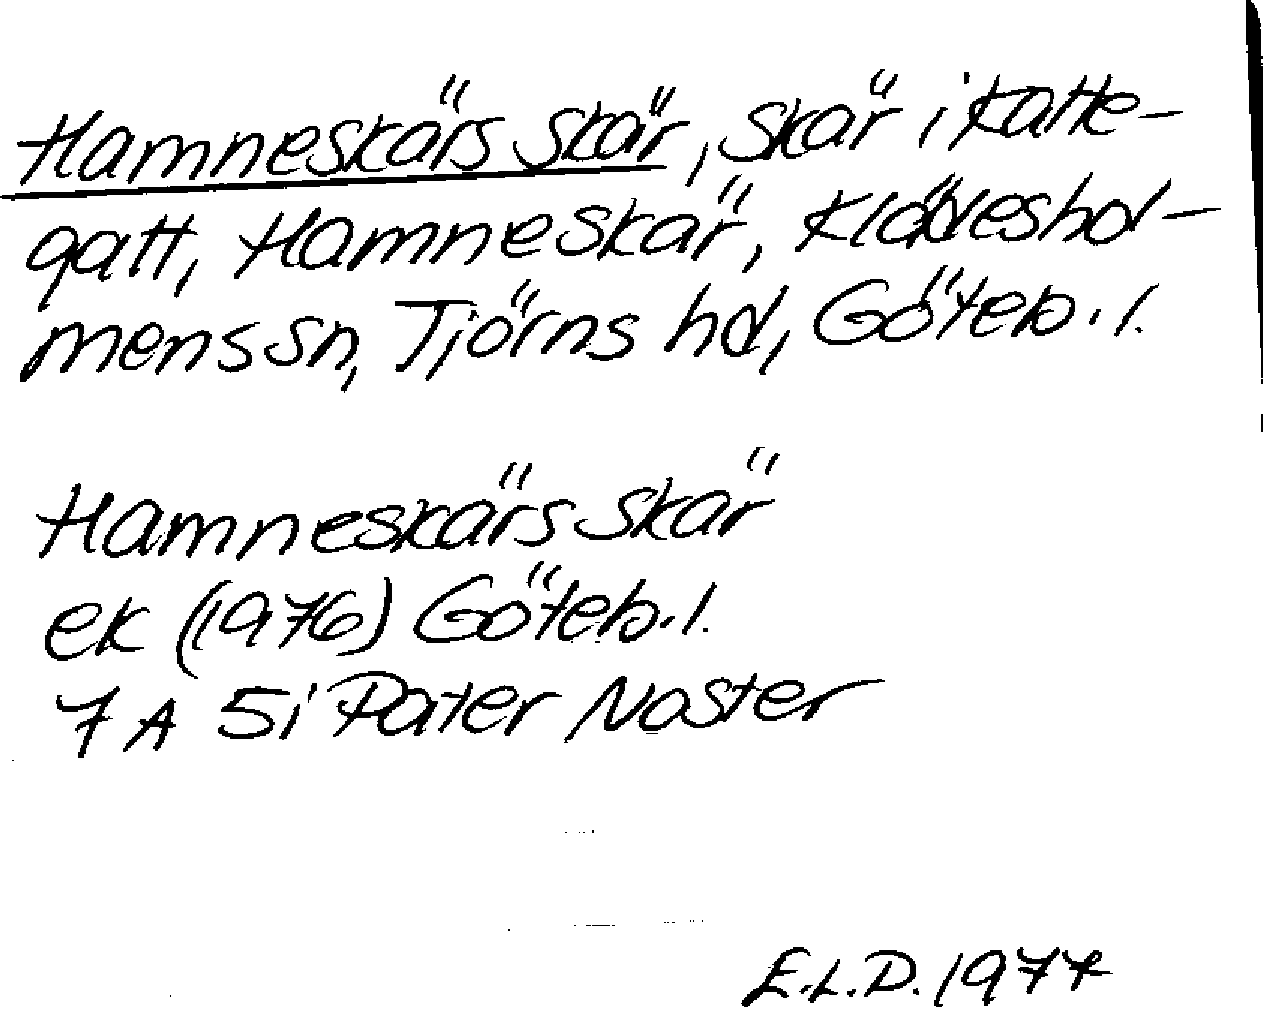 Hamneskärs skär, skär i Katte-
gatt, Hamneskär, Klädeshol-
mens sn, Tjörns hd, Göteb. l.
Hamneskärs skär
ek (1976) Göteb. l.
7 A 5i Pater Noster
E.L.D. 1977